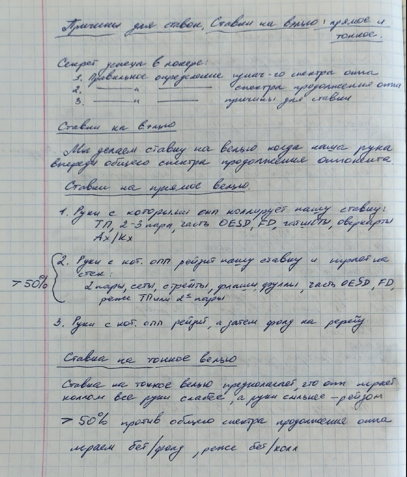 Причины для ставок. Ставки на вэлью: прямое и
тонкое.
Секрет успеха в покере:
1. Правильное определение спектра оппа
2. —— " —— спектра продолжения оппа
3. —— " —— причины для ставки
Ставки на вэлью
Мы делаем ставку на вэлью когда наша рука
впереди общего спектра продолжения оппонента
Ставки на прямое вэлью
1. Руки с которыми опп коллирует нашу ставку:
ТП, 2-3 пара, часть OESD, FD, гатшоты, оверкарты
Ax/Kx
>50%
2. Руки с кот. опп рейзит нашу ставку и играет на
стек:
2 пары, сеты, стрейты, флеши, фуллы, часть OESD, FD,
реже ТП или 2ые пары
3. Руки с кот. опп рейзит, а затем фолд на ререйз
Ставка на тонкое вэлью
Ставка на тонкое вэлью предполагает, что опп играет
коллом все руки слабее, а руки сильнее – рейзом
>50% против общего спектра продолжения оппа
играем бет/фолд, реже бет/колл